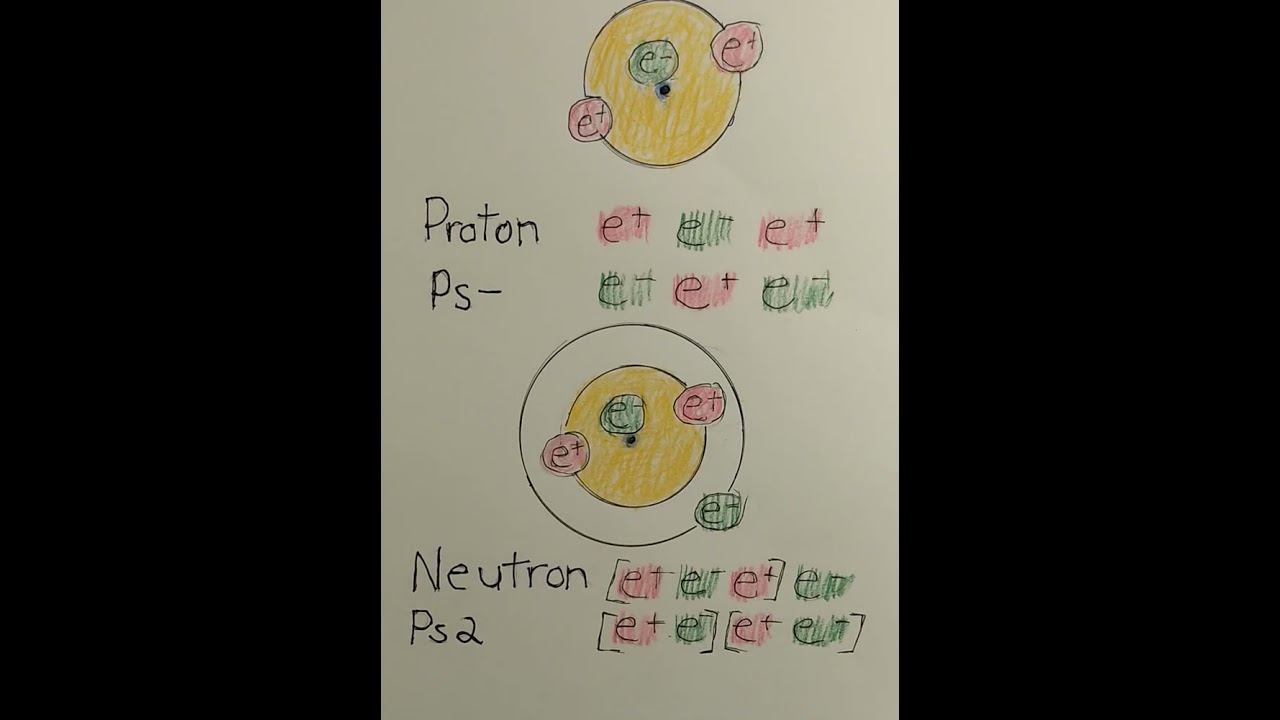 e-
e+
e+
Proton e+ e- e+
Ps- e- e+ e-
e-
e+
e+
e-
Neutron [e+ e- e+] e-
Ps2 [e+ e-] [e+ e-]